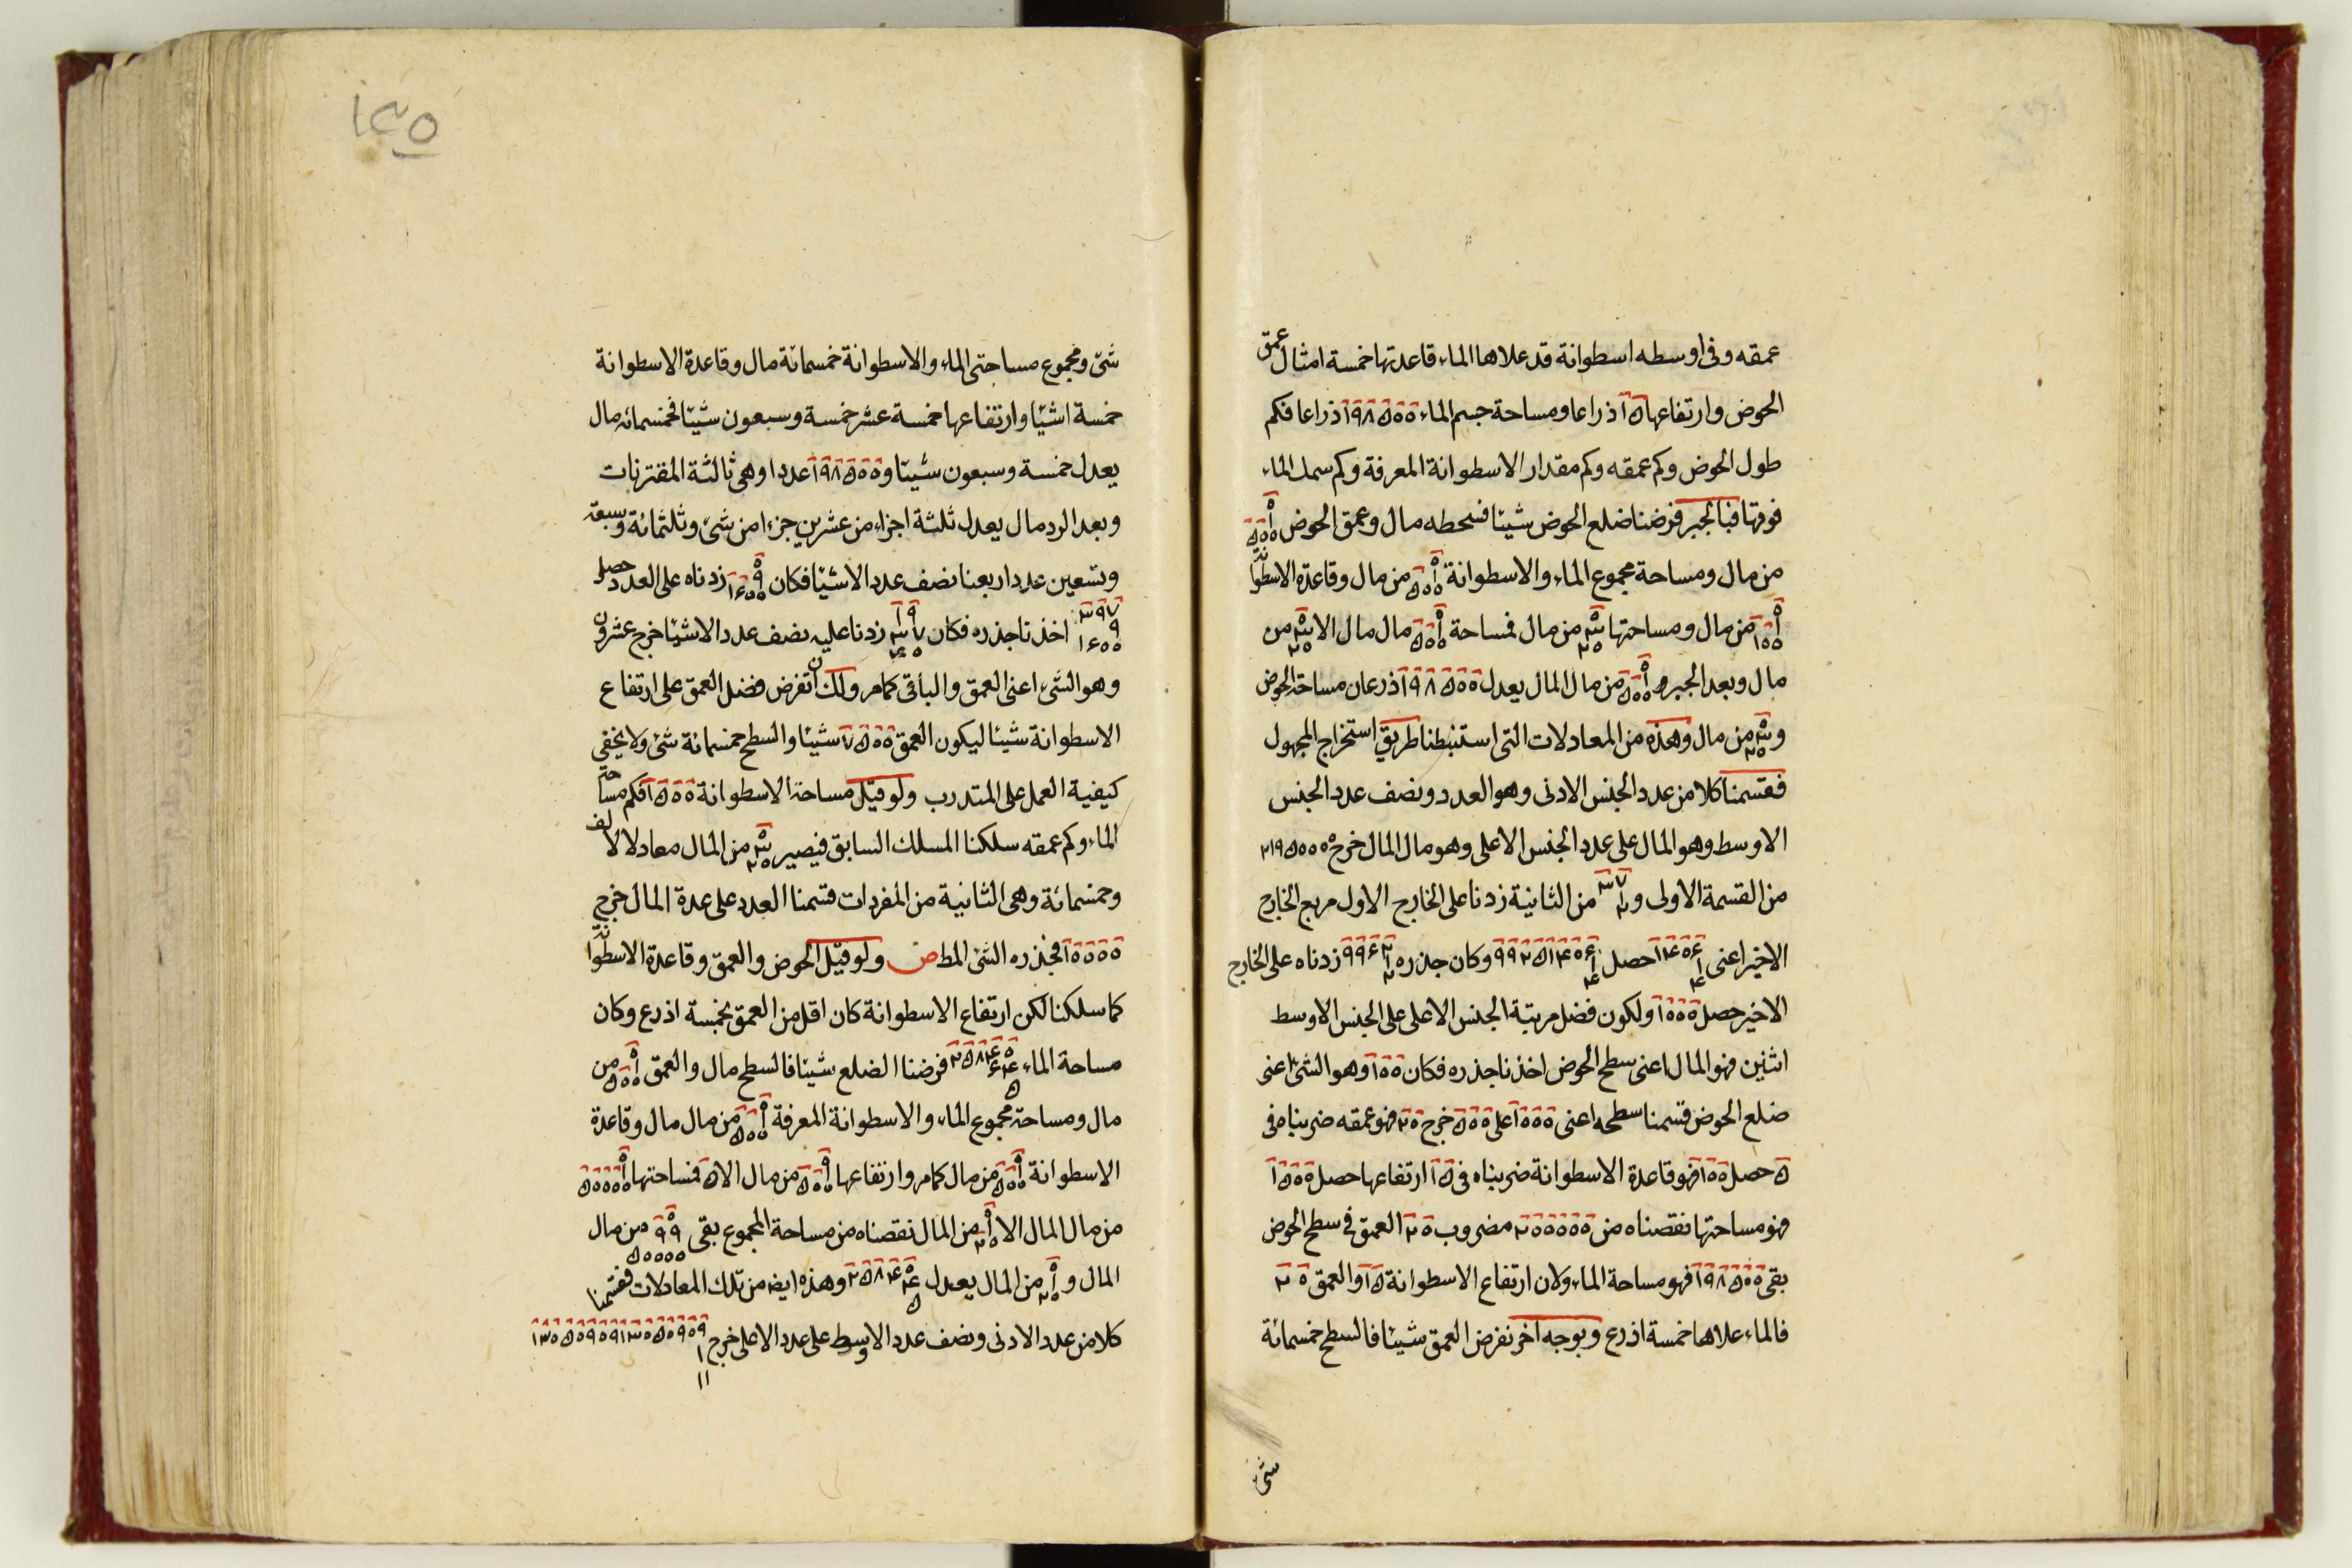 عمقه وفى اوسطه اسطوانة قد علاها الماء قاعدتها خمسة امثال عمق
الحوض وارتفاعها ۱۵ ذراعا ومساحة جسم الماء ۱۹۸۵۰۰ ذراعا فكم
طول الحوض وكم عمقه وكم مقدار الاسطوانة المعرفة وكم سمك الماء
فوقها فبالجبر فرضنا ضلع الحوض شيئا فسطحه مال وعمق الحوض
من مال ومساحة مجموع الماء والاسطوانة من مال وقاعدة الاسطوانة
من مال ومساحتها من مال فمساحة مال مال الا من
مال وبعد الجبر من مال المال يعدل ۱۹۸۵۰۰ ذرعان مساحة الحوض
و من مال وهذه من المعادلات التى استنبطنا طريق استخراج المجهول
فقسمنا كلا من عدد الجنس الادنى وهو العدد ونصف عدد الجنس
الاوسط وهو المال على عدد الجنس الاعلى وهو مال المال خرج
من القسمة الاولى و من الثانية زدنا على الخارج الاول مربع الخارج
الاخير اعنى حصل وكان جذره زدناه على الخارج
الاخير حصل ۱۰۰۰۰ ولكون فضل مرتبة الجنس الاعلى على الجنس الاوسط
اثنين فهو المال اعنى سطح الحوض اخذنا جذره فكان ۱۰۰ وهو الشئ اعنى
ضلع الحوض قسمنا سطحه اعنى ۱۰۰۰۰ على ۵۰۰ خرج ۲۰ فهو عمقه ضربناه فى
۵ حصل ۱۰۰ فهو قاعدة الاسطوانة ضربناه فى ۱۵ ارتفاعها حصل ۱۵۰۰
فهو مساحتها نقصناه من ۲۰۰۰۰۰ مضروب ۲۰ العمق فى سطح الحوض
بقى ۱۹۸۵۰۰ فهو مساحة الماء ولان ارتفاع الاسطوانة ۱۵ والعمق ۲۰
فالماء علاها خمسة اذرع وبوجه اخر نفرض العمق شيئا فالسطح خمسمائة
شئ
۱۳۵
شئ ومجموع مساحتى الماء والاسطوانة خمسمائة مال وقاعدة الاسطوانة
خمسة اشيا وارتفاعها خمسة عشر خمسة وسبعون شيئا فخمسمائه مال
يعدل خمسة وسبعون شيئا و ۱۹۸۵۰۰ عددا وهى ثالثة المقترنات
وبعد الرد مال يعدل ثلثة اجزاء من عشرين جزءا من شئ وثلثمائة وسبعة
وتسعين عددا ربعنا نصف عدد الاشيا فكان زدناه على العدد حصل
اخذنا جذره فكان زدنا عليه نصف عدد الاشيا خرج عشرون
وهو الشئ اعنى العمق والباقى كمامر ولك ان تفرض فضل العمق على ارتفاع
الاسطوانة شيئا ليكون العمق شيئا والسطح خمسمائة شئ ولا يخفى
كيفية العمل على المتدرب ولو قيل مساحة الاسطوانة ۱۵۰۰ فكم مساحة
الماء وكم عمقه سلكنا المسلك السابق فيصير من المال معادلا لالف
وخمسمائة وهى الثانية من المفردات قسمنا العدد على عدة المال خرج
۱۰۰۰۰ فجذره الشئ المط ولو قيل الحوض والعمق وقاعدة الاسطوانة
كما سلكنا لكن ارتفاع الاسطوانة كان اقل من العمق بخمسة اذرع وكان
مساحة الماء فرضنا الضلع شيئا فالسطح مال والعمق من
مال ومساحة مجموع الماء والاسطوانة المعرفة من مال مال وقاعدة
الاسطوانة من مال كمامر وارتفاعها من مال الا ۵ فمساحتها
من مال المال الا من المال نقصناه من مساحة المجموع بقى من مال
المال و من المال يعدل وهذه ايضه من تلك المعادلات فقسمنا
كلا من عدد الادنى ونصف عدد الاوسط على عدد الاعلى خرج